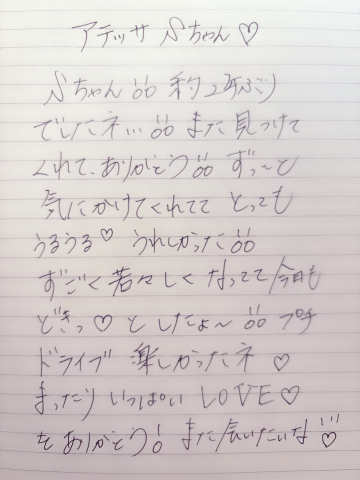 アテッサ Sちゃん♡
Sちゃん!! 約2年ぶり
でしたネ… !! また見つけて
くれて、ありがとう!! ずっ〜と
気にかけてくれてて とっても
うるうる♡ うれしかった!!
すごく若々しく なってて今日も
どきっ♡ としたょ〜!! プチ
ドライブ 楽しかったネ ♡
まったり いっぱい LOVE♡
をありがとう! また会いたいな!! ♡